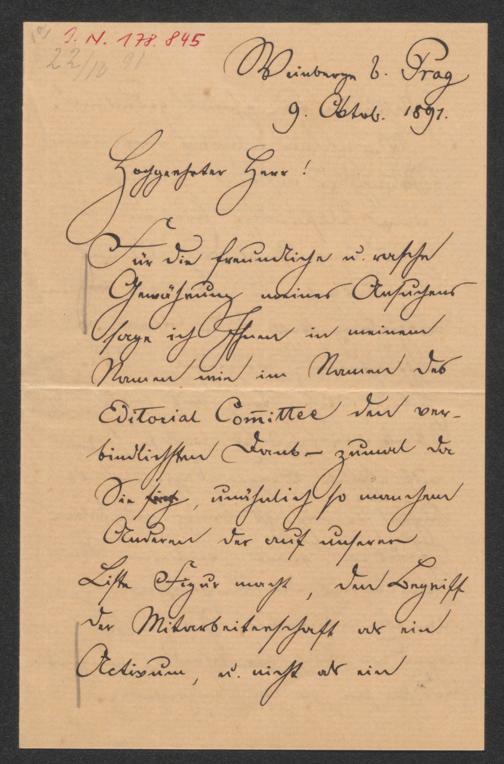 I. N. 178.845
22/10 91
Weinberge b. Prag
9. Oktob. 1891.
Hochgeehrter Herr!
Für die freundliche u. rasche
Gewährung meines Ansuchens
sage ich Ihnen in meinem
Namen wie im Namen des
Editorial Com̅ittee den ver-
bindlichsten Dank – zumal da
Sie, unähnlich so manchem
Anderen der auf unserer
Liste Figur macht, den Begriff
der Mitarbeiterschaft als ein
Activum, u. nicht als ein